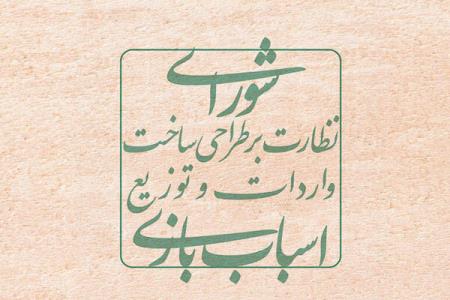 شورای
نظارت بر طراحی ساخت
واردات و توزیع
اسباب بازی